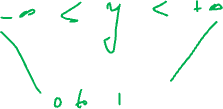 -∞ ≤ y < +∞
0 to 1